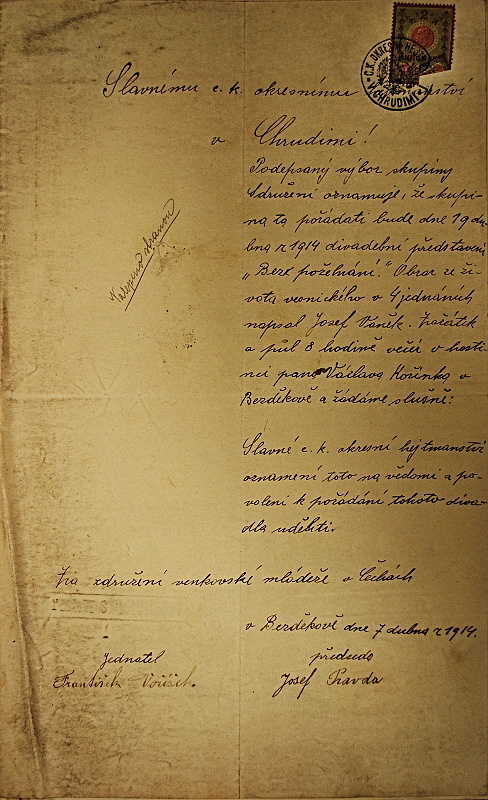 C.K. OKRESNÍ HEJTM
V CHRUDIMI
Slavnému c. k. okresnímu
v Chrudimi!
Podepsaný výbor skupiny
Sdružení oznamuje, že skupi-
na ta pořádati bude dne 19 du-
bna r 1914 divadební představení
„Bez požehnání." Obraz ze ži-
vota vesnického v 4 jednáních
napsal Josef Vaněk. Začátek
o půl 8 hodině večer v hostin-
ci pana Václava Kořínka v
Bezděkově a žádáme slušně:
Slavné c. k. okresní hejtmanství
oznamení toto na vědomí a po-
volení k pořádání tohoto diva-
dla uděliti.
Za združení venkovské mládeže v Čechách
v Bezděkově dne 7 dubna r 1914.
Jednatel
předseda
František
Josef Pravda